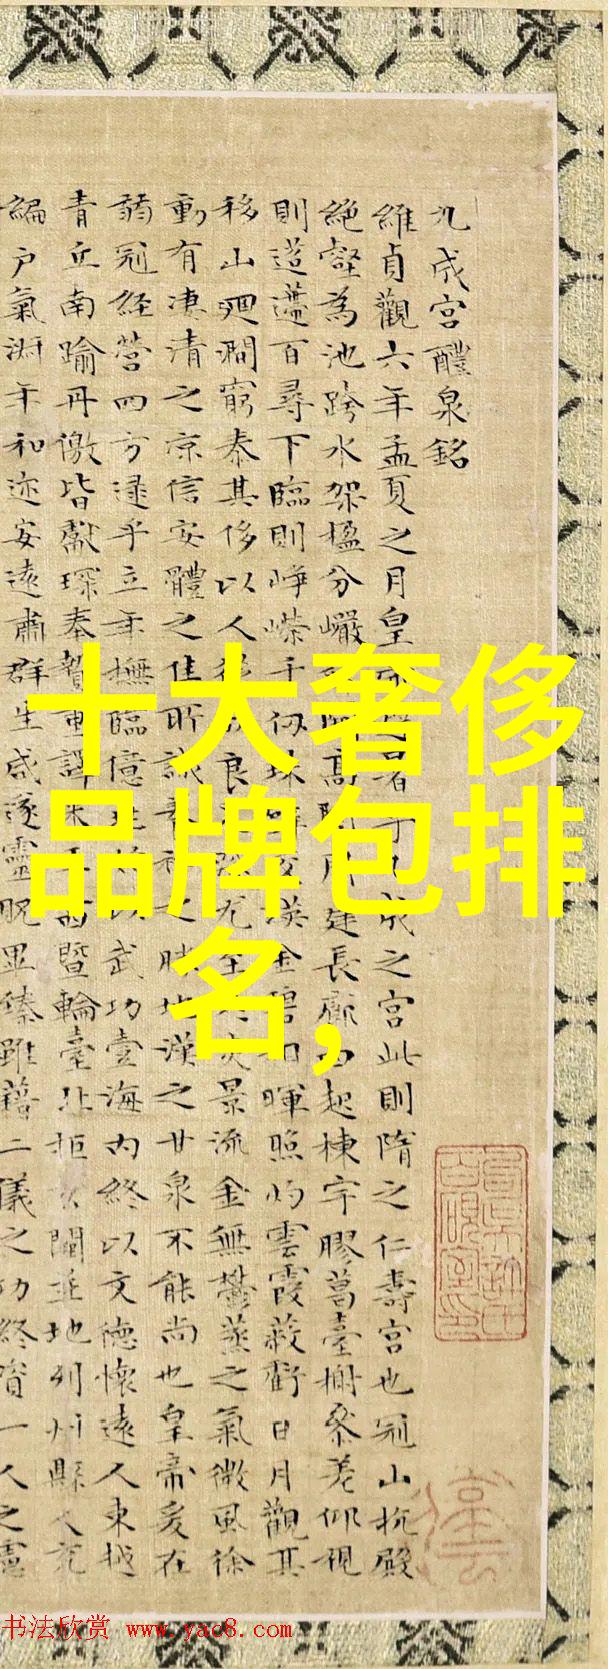 十大奢侈
品牌包排
名,
九成宮醴泉銘
維貞觀六年孟夏之月皇帝避暑于九成之宮此則隋之仁壽宮也冠山抗殿
絕壑為池跨水架楹分巖高閣周建長廊四起棟宇膠葛臺榭參差仰視
則迢遰百尋下臨則崢嶸千仞珠璧交映金碧相暉照灼雲霞蔽虧日月觀其
移山迴澗窮泰其侈以人從欲良足尤至於炎景流金無鬱蒸之氣微風徐
動有淒清之涼信安體之佳所誠養神之勝地漢之甘泉不能尚也皇帝爰在
弱冠經營四方逮乎立年撫臨億兆始以武功壹海內終以文德懷遠人東越
青丘南踰丹儌皆獻琛奉贄重譯來王西暨輪臺北拒玄闕並地列州縣人充
編戶氣淑年和迩安遠肅群生咸遂靈貺畢臻雖藉二儀之功終資一人之慮
书法欣赏 www.yac8.com